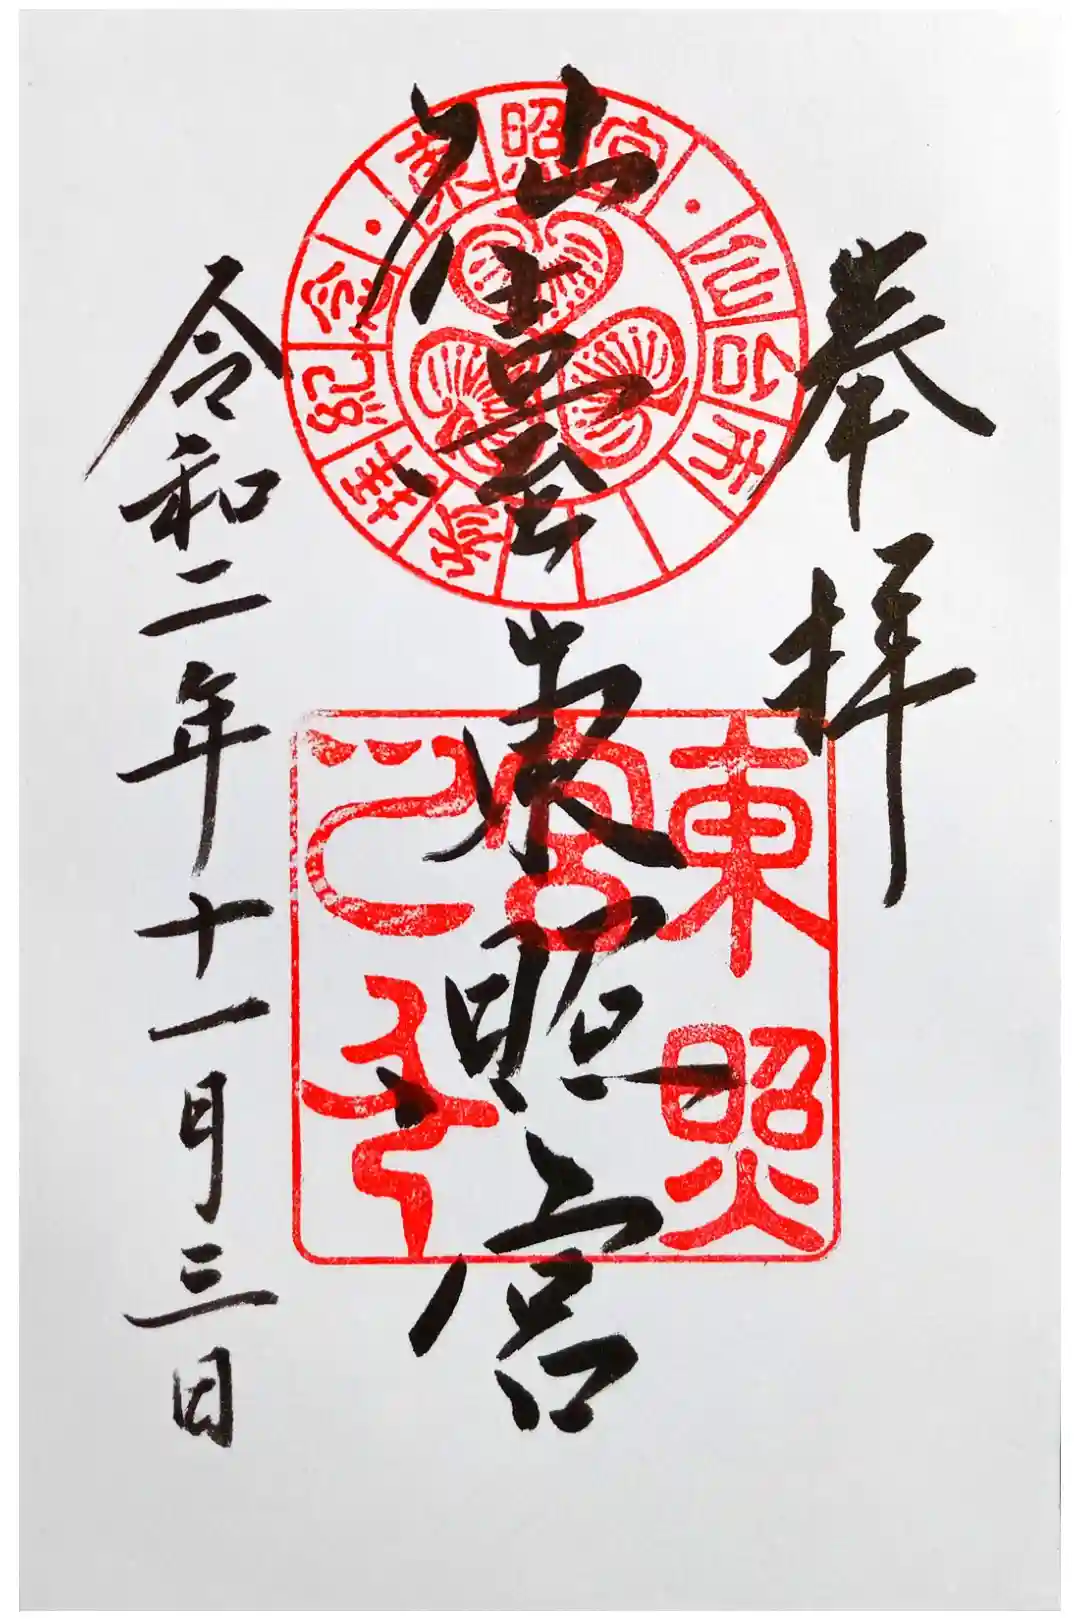 奉拝
仙臺東照宮
令和二年十一月三日
東照宮・仙台市
參拝記念・
東照宮